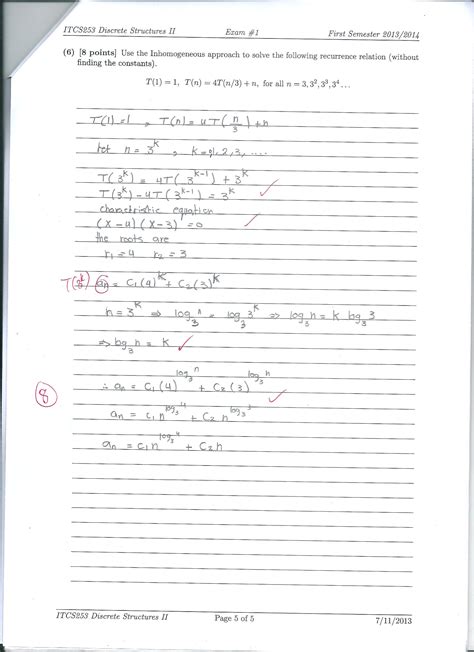 ITCS253 Discrete Structures II Exam #1 First Semester 2013/2014
(6) [8 points] Use the Inhomogeneous approach to solve the following recurrence relation (without
finding the constants).
T(1) = 1, T(n) = 4T(n/3) + n, for all n = 3, 3², 3³, 3⁴ ...
T(1) = 1 , T(n) = 4T(n/3) + n
let n = 3^k , k = 0, 1, 2, 3, ....
T(3^k) = 4T(3^(k-1)) + 3^k
T(3^k) - 4T(3^(k-1)) = 3^k
characteristic equation
(x - 4)(x - 3) = 0
the roots are
r₁ = 4 r₂ = 3
T(3^k) an = C₁(4)^k + C₂(3)^k
n = 3^k ⇒ log₃ n = log₃ 3^k ⇒ log₃ n = k log₃ 3
⇒ log₃ n = k
∴ an = C₁(4)^(log₃ n) + C₂(3)^(log₃ n)
8
an = C₁ n^(log₃ 4) + C₂ n^(log₃ 3)
an = C₁ n^(log₃ 4) + C₂ n
ITCS253 Discrete Structures II Page 5 of 5 7/11/2013